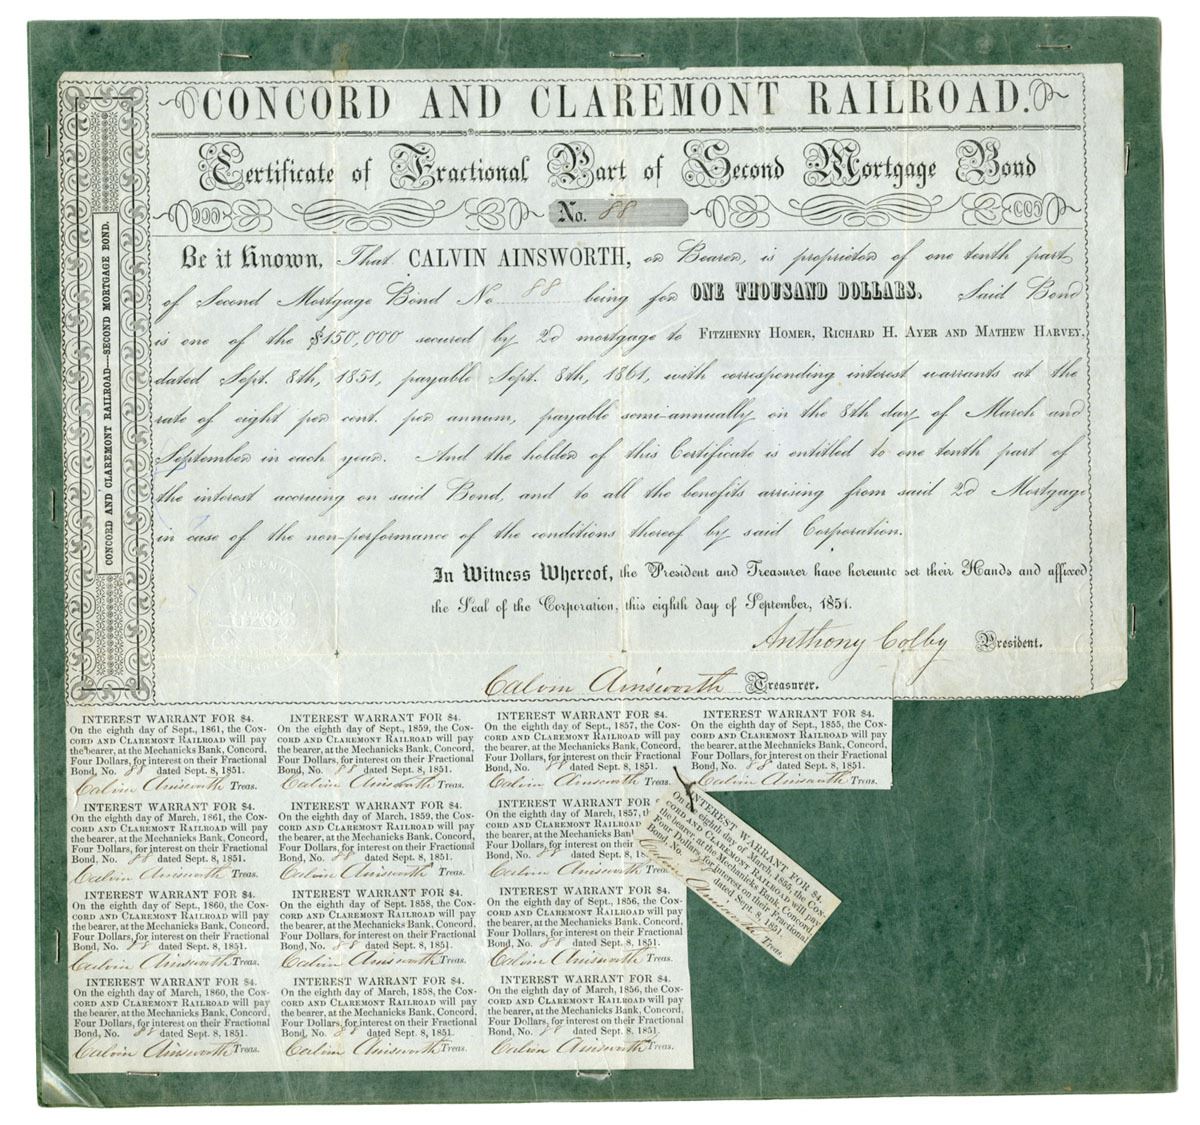 CONCORD AND CLAREMONT RAILROAD.
Certificate of Fractional Part of Second Mortgage Bond
No. 88
CONCORD AND CLAREMONT RAILROAD—SECOND MORTGAGE BOND.
Be it Known, That CALVIN AINSWORTH, or Bearer, is proprietor of one tenth part
of Second Mortgage Bond No 88 being for ONE THOUSAND DOLLARS. Said Bond
is one of the $150,000 secured by 2d mortgage to FITZHENRY HOMER, RICHARD H. AYER AND MATHEW HARVEY.
dated Sept. 8th, 1851, payable Sept. 8th, 1861, with corresponding interest warrants at the
rate of eight per cent. per annum, payable semi-annually on the 8th day of March and
September in each year. And the holder of this Certificate is entitled to one tenth part of
the interest accruing on said Bond, and to all the benefits arising from said 2d Mortgage
in case of the non-performance of the conditions thereof by said Corporation.
In Witness Whereof, the President and Treasurer have hereunto set their Hands and affixed
the Seal of the Corporation, this eighth day of September, 1851.
Anthony Colby President.
Calvin Ainsworth Treasurer.
INTEREST WARRANT FOR $4.
On the eighth day of Sept., 1861, the CON-
CORD AND CLAREMONT RAILROAD will pay
the bearer, at the Mechanicks Bank, Concord,
Four Dollars, for interest on their Fractional
Bond, No. 88 dated Sept. 8, 1851.
Calvin Ainsworth Treas.
INTEREST WARRANT FOR $4.
On the eighth day of Sept., 1859, the CON-
CORD AND CLAREMONT RAILROAD will pay
the bearer, at the Mechanicks Bank, Concord,
Four Dollars, for interest on their Fractional
Bond, No. 88 dated Sept. 8, 1851.
Calvin Ainsworth Treas.
INTEREST WARRANT FOR $4.
On the eighth day of Sept., 1857, the CON-
CORD AND CLAREMONT RAILROAD will pay
the bearer, at the Mechanicks Bank, Concord,
Four Dollars, for interest on their Fractional
Bond, No. 88 dated Sept. 8, 1851.
Calvin Ainsworth Treas.
INTEREST WARRANT FOR $4.
On the eighth day of Sept., 1855, the CON-
CORD AND CLAREMONT RAILROAD will pay
the bearer, at the Mechanicks Bank, Concord,
Four Dollars, for interest on their Fractional
Bond, No. 88 dated Sept. 8, 1851.
Calvin Ainsworth Treas.
INTEREST WARRANT FOR $4.
On the eighth day of March, 1861, the CON-
CORD AND CLAREMONT RAILROAD will pay
the bearer, at the Mechanicks Bank, Concord,
Four Dollars, for interest on their Fractional
Bond, No. 88 dated Sept. 8, 1851.
Calvin Ainsworth Treas.
INTEREST WARRANT FOR $4.
On the eighth day of March, 1859, the CON-
CORD AND CLAREMONT RAILROAD will pay
the bearer, at the Mechanicks Bank, Concord,
Four Dollars, for interest on their Fractional
Bond, No. 88 dated Sept. 8, 1851.
Calvin Ainsworth Treas.
INTEREST WARRANT FOR
On the eighth day of March, 1857,
CORD AND CLAREMONT RAILROAD
the bearer, at the Mechanicks
Four Dollars, for interest on their
Bond, No. 88 dated Sept. 8,
Calvin Ainsworth
INTEREST WARRANT FOR $4.
On the eighth day of March, 1855, the CON-
CORD AND CLAREMONT RAILROAD will pay
the bearer, at the Mechanicks Bank, Concord
Four Dollars, for interest on their Fractional
Bond, No. 88 dated Sept. 8, 1851
Calvin Ainsworth Treas.
INTEREST WARRANT FOR $4.
On the eighth day of Sept., 1860, the CON-
CORD AND CLAREMONT RAILROAD will pay
the bearer, at the Mechanicks Bank, Concord,
Four Dollars, for interest on their Fractional
Bond, No. 88 dated Sept. 8, 1851.
Calvin Ainsworth Treas.
INTEREST WARRANT FOR $4.
On the eighth day of Sept. 1858, the CON-
CORD AND CLAREMONT RAILROAD will pay
the bearer, at the Mechanicks Bank, Concord,
Four Dollars, for interest on their Fractional
Bond, No. 88 dated Sept. 8, 1851.
Calvin Ainsworth Treas.
INTEREST WARRANT FOR $4.
On the eighth day of Sept., 1856, the CON-
CORD AND CLAREMONT RAILROAD will pay
the bearer, at the Mechanicks Bank, Concord,
Four Dollars, for interest on their Fractional
Bond, No. 88 dated Sept. 8, 1851.
Calvin Ainsworth Treas.
INTEREST WARRANT FOR $4.
On the eighth day of March, 1860, the CON-
CORD AND CLAREMONT RAILROAD will pay
the bearer, at the Mechanicks Bank, Concord,
Four Dollars, for interest on their Fractional
Bond, No. 88 dated Sept. 8, 1851.
Calvin Ainsworth Treas.
INTEREST WARRANT FOR $4.
On the eighth day of March, 1858, the CON-
CORD AND CLAREMONT RAILROAD will pay
the bearer, at the Mechanicks Bank, Concord,
Four Dollars, for interest on their Fractional
Bond, No. 88 dated Sept. 8, 1851.
Calvin Ainsworth Treas.
INTEREST WARRANT FOR $4.
On the eighth day of March, 1856, the CON-
CORD AND CLAREMONT RAILROAD will pay
the bearer, at the Mechanicks Bank, Concord,
Four Dollars, for interest on their Fractional
Bond, No. 88 dated Sept. 8, 1851
Calvin Ainsworth Treas.